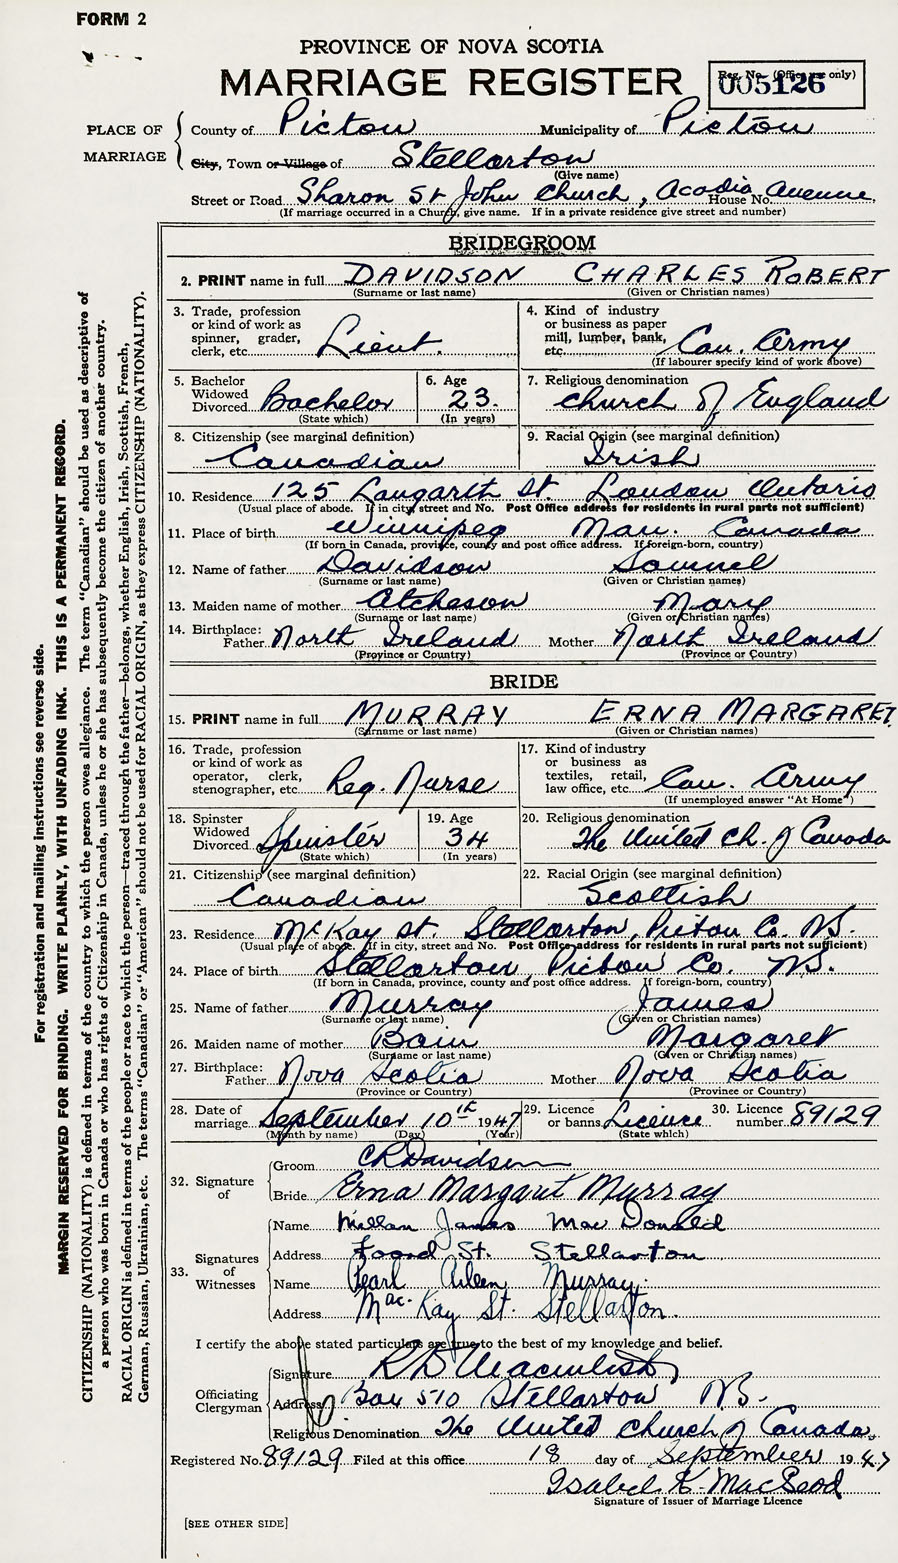 FORM 2
PROVINCE OF NOVA SCOTIA
MARRIAGE REGISTER
Reg. No. (Office use only)
005126
PLACE OF MARRIAGE
County of Pictou Municipality of Pictou
City, Town or Village of Stellarton
(Give name)
Street or Road Sharon St John Church, Acadia Avenue. House No.
(If marriage occurred in a Church, give name. If in a private residence give street and number)
BRIDEGROOM
2. PRINT name in full DAVIDSON CHARLES ROBERT
(Surname or last name) (Given or Christian names)
3. Trade, profession or kind of work as spinner, grader, clerk, etc. Lieut.
4. Kind of industry or business as paper mill, lumber, bank, etc. Can. Army
(If labourer specify kind of work above)
5. Bachelor Widowed Divorced Bachelor
(State which)
6. Age 23.
(In years)
7. Religious denomination Church of England
8. Citizenship (see marginal definition) Canadian
9. Racial Origin (see marginal definition) Irish
10. Residence 125 Langarth St. London Ontario
(Usual place of abode. If in city, street and No. Post Office address for residents in rural parts not sufficient)
11. Place of birth Winnipeg Man. Canada
(If born in Canada, province, county and post office address. If foreign-born, country)
12. Name of father Davidson Samuel
(Surname or last name) (Given or Christian names)
13. Maiden name of mother Atcheson Mary
(Surname or last name) (Given or Christian names)
14. Birthplace: Father North Ireland Mother North Ireland
(Province or Country) (Province or Country)
BRIDE
15. PRINT name in full MURRAY ERNA MARGARET
(Surname or last name) (Given or Christian names)
16. Trade, profession or kind of work as operator, clerk, stenographer, etc. Reg. Nurse
17. Kind of industry or business as textiles, retail, law office, etc. Can. Army
(If unemployed answer "At Home")
18. Spinster Widowed Divorced Spinster
(State which)
19. Age 34
(In years)
20. Religious denomination The United Ch. of Canada
21. Citizenship (see marginal definition) Canadian
22. Racial Origin (see marginal definition) Scottish
23. Residence McKay St Stellarton, Pictou Co. N.S.
(Usual place of abode. If in city, street and No. Post Office address for residents in rural parts not sufficient)
24. Place of birth Stellarton, Pictou Co. N.S.
(If born in Canada, province, county and post office address. If foreign-born, country)
25. Name of father Murray James
(Surname or last name) (Given or Christian names)
26. Maiden name of mother Bain Margaret
(Surname or last name) (Given or Christian names)
27. Birthplace: Father Nova Scotia Mother Nova Scotia
(Province or Country) (Province or Country)
28. Date of marriage September 10th 1947
(Month by name) (Day) (Year)
29. Licence or banns Licence
(State which)
30. Licence number 89129
32. Signature of
Groom CR Davidson
Bride Erna Margaret Murray
33. Signatures of Witnesses
Name James MacDonald
Address Foord St. Stellarton
Name Pearl Aileen Murray.
Address Mac. Kay St. Stellarton.
I certify the above stated particulars are true to the best of my knowledge and belief.
Officiating Clergyman
Signature
Address Box 510 Stellarton N.S.
Religious Denomination The United Church of Canada.
Registered No. 89129 Filed at this office 18 day of September 1947
Isabel K. MacLeod
Signature of Issuer of Marriage Licence
[SEE OTHER SIDE]
For registration and mailing instructions see reverse side.
MARGIN RESERVED FOR BINDING. WRITE PLAINLY, WITH UNFADING INK. THIS IS A PERMANENT RECORD.
CITIZENSHIP (NATIONALITY) is defined in terms of the country to which the person owes allegiance. The term "Canadian" should be used as descriptive of
a person who was born in Canada or who has rights of Citizenship in Canada, unless he or she has subsequently become the citizen of another country.
RACIAL ORIGIN is defined in terms of the people or race to which the person—traced through the father—belongs, whether English, Irish, Scottish, French,
German, Russian, Ukrainian, etc. The terms "Canadian" or "American" should not be used for RACIAL ORIGIN, as they express CITIZENSHIP (NATIONALITY).